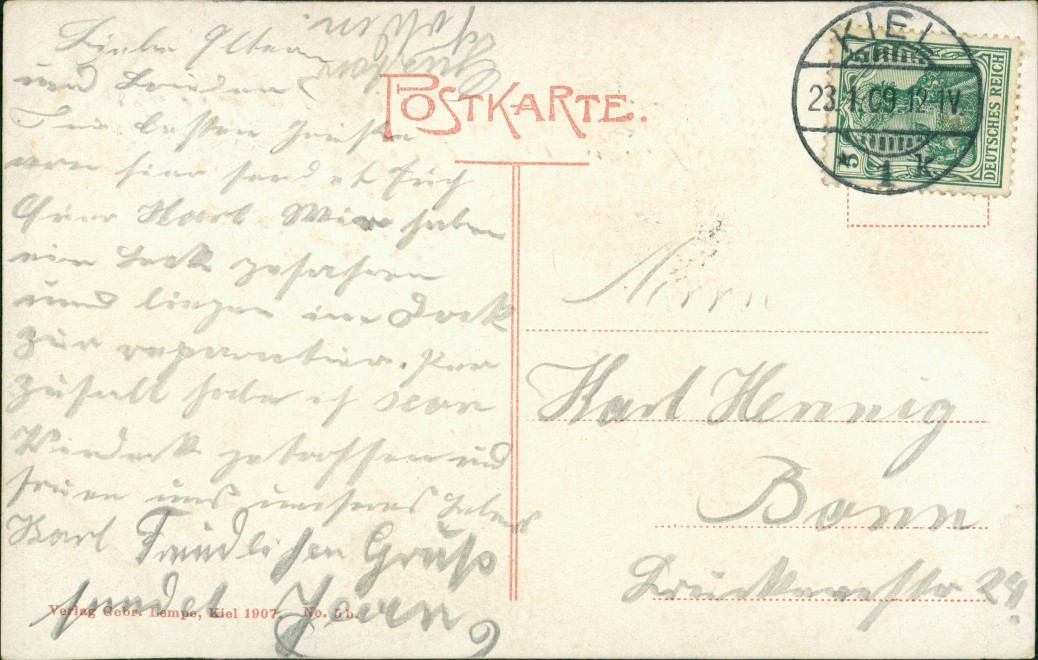 Liebe Eltern
und Brüder
Die besten Grüße
von hier sendet Euch
Euer Karl. Wir haben
ein Leck gefahren
und liegen im Dock
zur reparatur. Per
Zufall habe ich Jean
getroffen und
freuen uns unseres Lebens
Karl Freudlichen Gruß
sendet Jean
POSTKARTE.
KIEL
23.1.09.12-1V.
* 1 k
DEUTSCHES REICH
Herrn
Karl Hennig
Bonn
28
Verlag Gebr. Lempe, Kiel 1907. No. 5b.